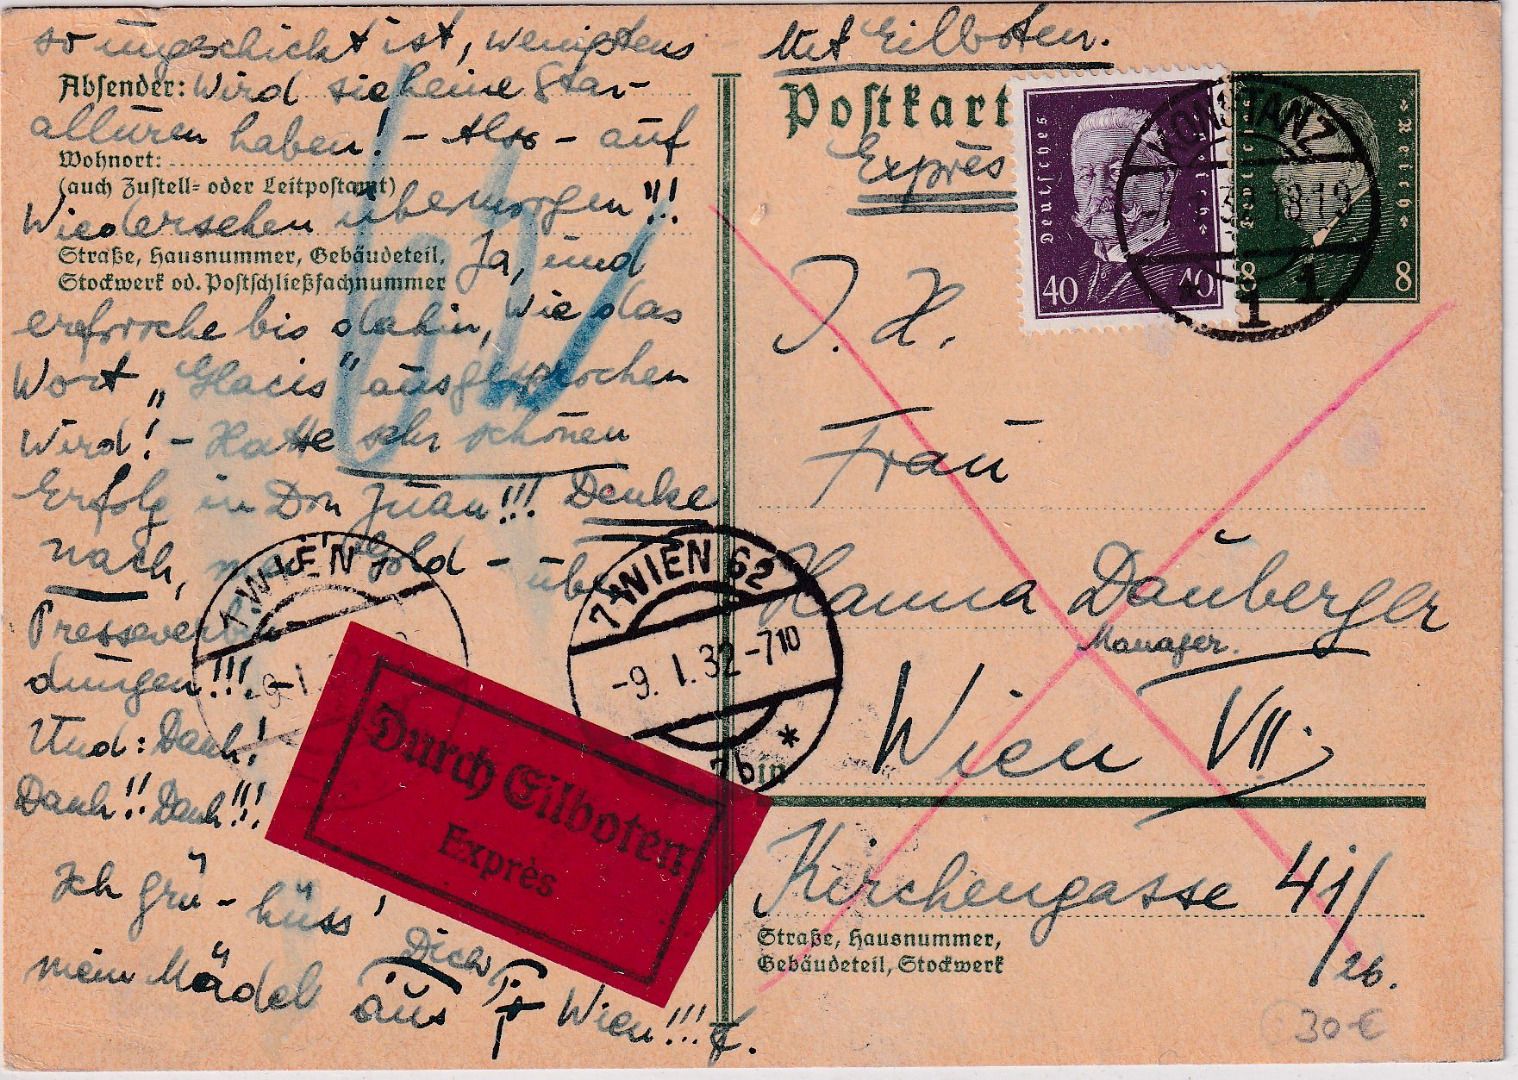 so ungeschickt ist, wenigstens
Absender: wird sie keine Star-
allüren haben! - Also - auf
Wohnort:
(auch Zustell- oder Leitpostamt)
Wiedersehen übermorgen!!!
Straße, Hausnummer, Gebäudeteil,
Stockwerk od. Postschließfachnummer
Ja, und
erforsche bis dahin, wie das
Wort „Glacis" ausgesprochen
wird! - Hatte sehr schönen
Erfolg in Don Juan!!! Denke
nach, Gold - über
Presseverbin-
dungen!!! -
Und: Dank!
Dank!! Dank!!!
Ich grü- küss' Dich
mein Mädel aus Wien!!! 
Mit Eilboten.
Postkart
Exprès
Deutsches Reich
40 40
Deutsches Reich
8 8
KONSTANZ
18-19
* 1 1
I. H.
Frau
Hanna Dauberger
Manager.
in Wien VII.
Kirchengasse 41/
26.
Straße, Hausnummer,
Gebäudeteil, Stockwerk
1 WIEN
-9. I.
7 WIEN 62
-9. I. 32 -7 10
7b *
Durch Eilboten
Exprès
30 €